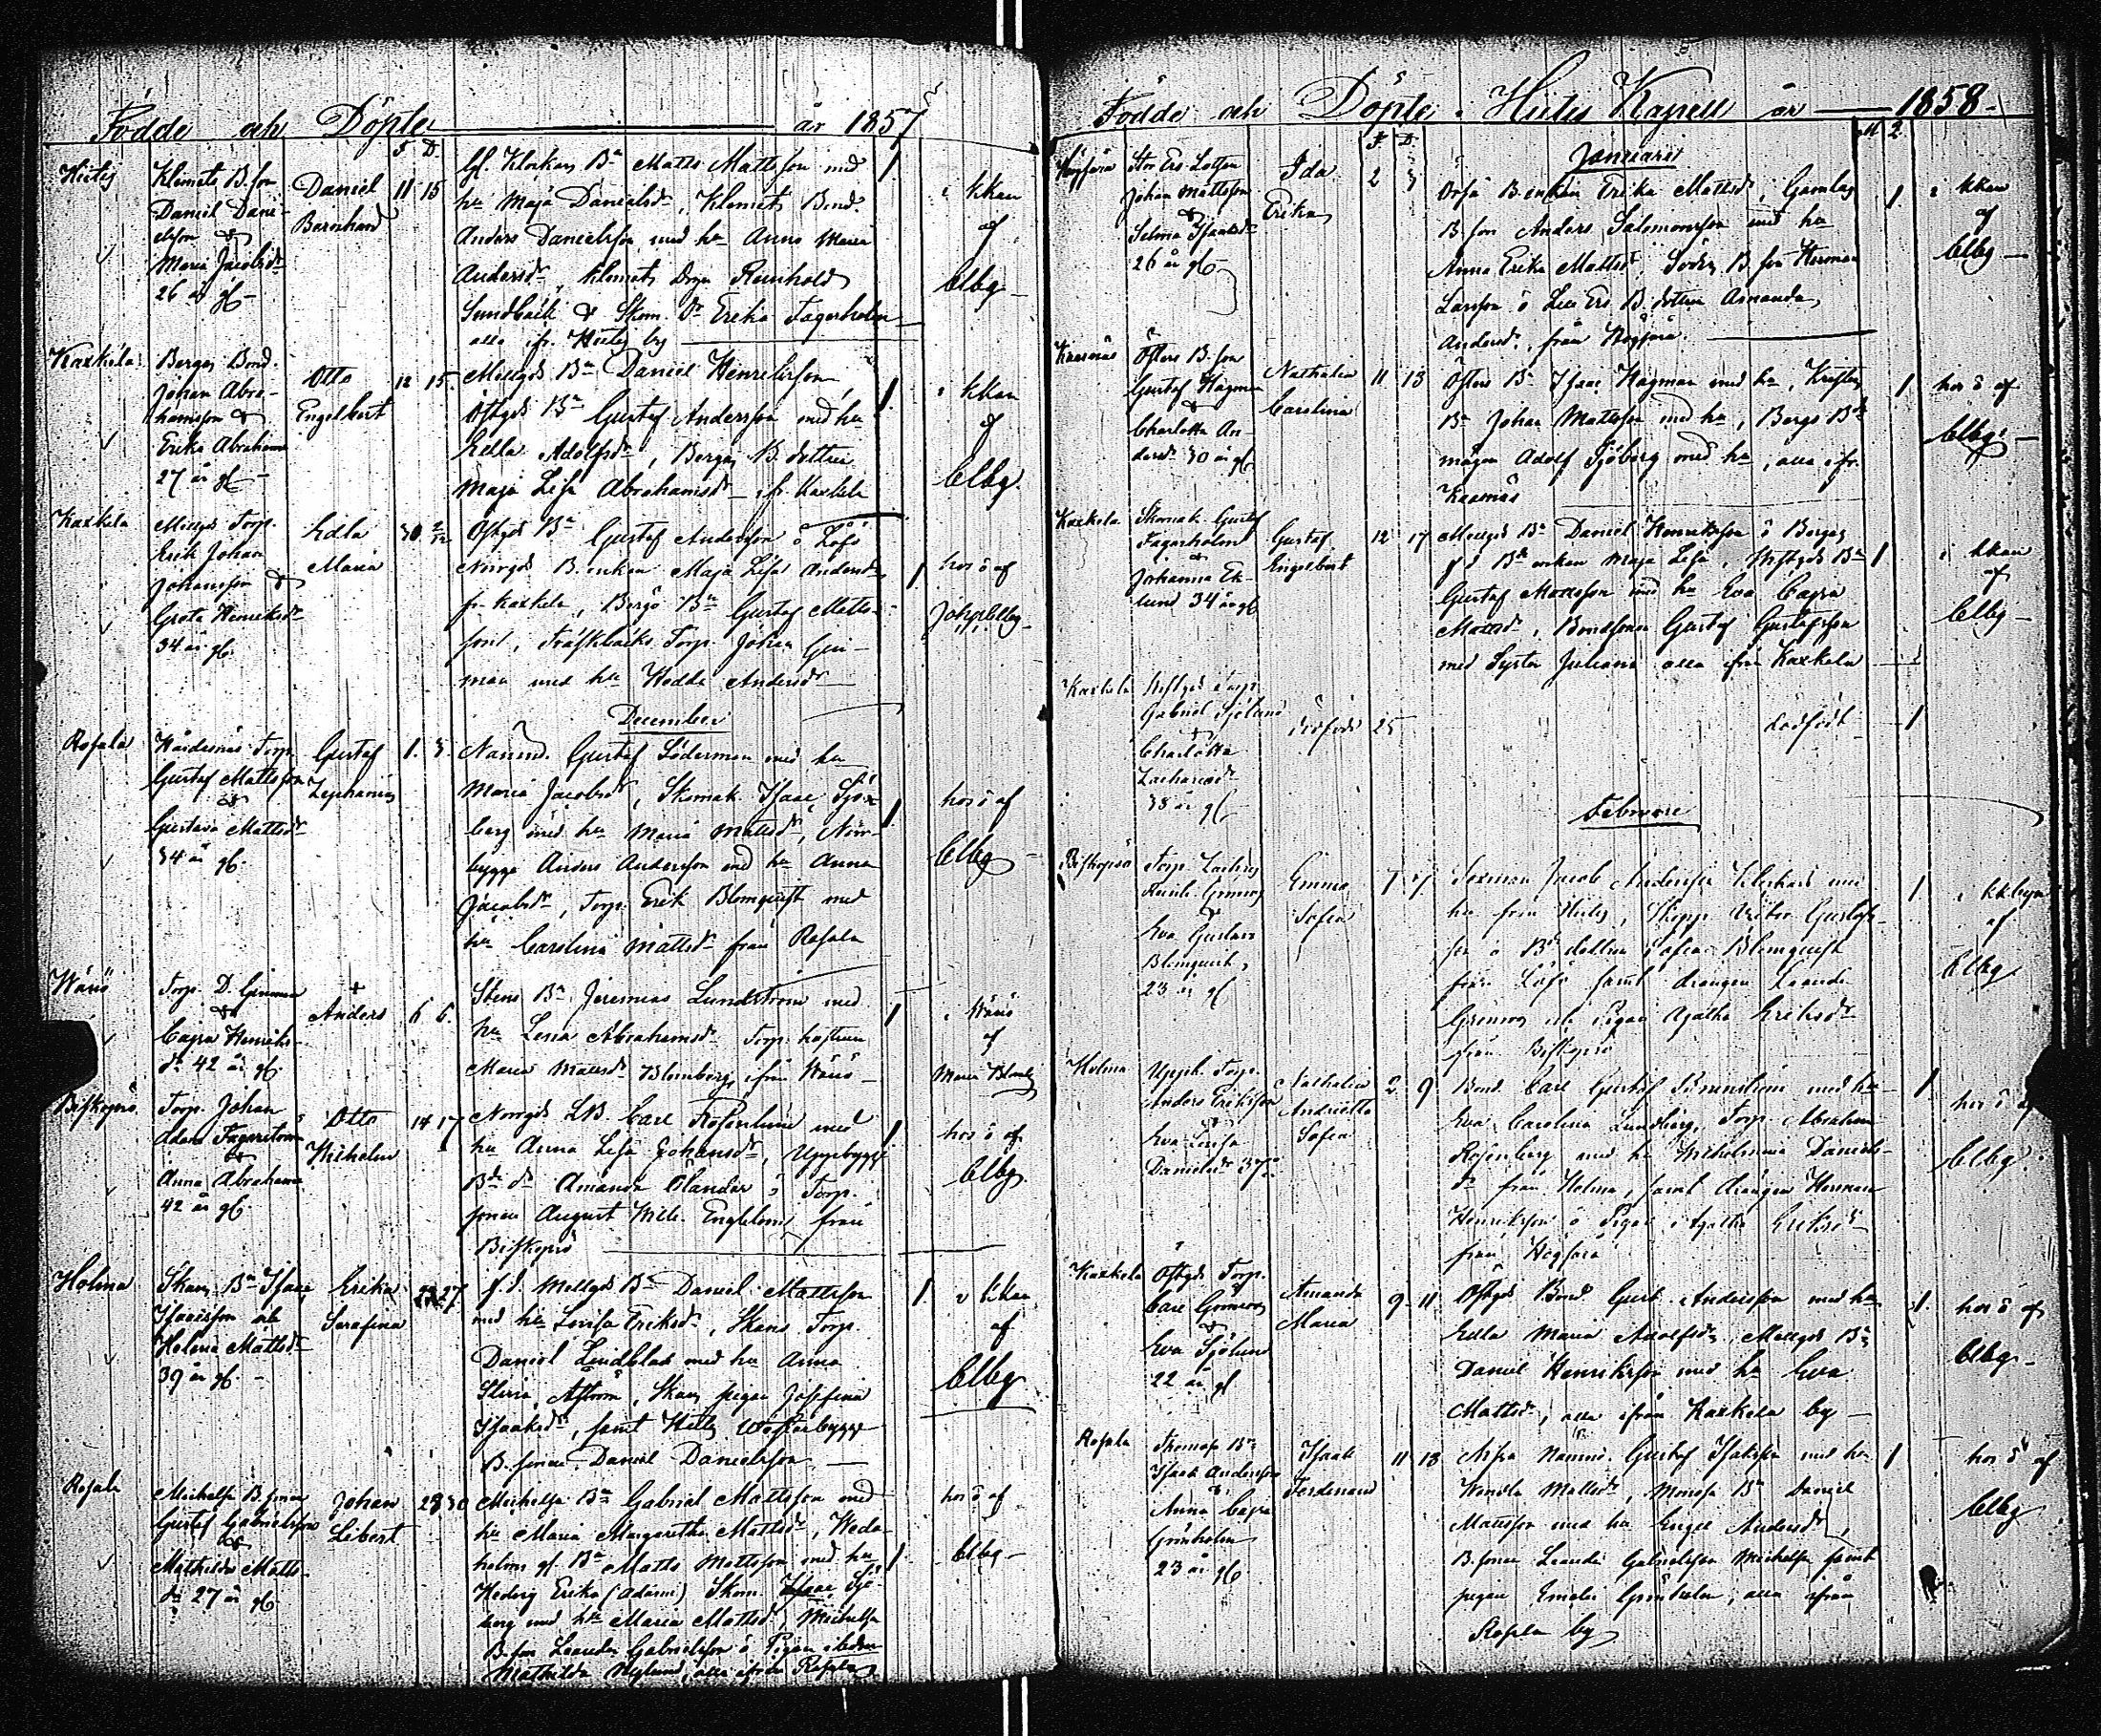 Födde och Döpte år 1857
F. D.
Hiitis
Klemets B. son
Daniel Dani-
elsson &
Maria Jacobsdr
26 år gl
Daniel
Bernhard
11 15
Gl. Klockars Bn Matts Mattsson med
hu Maja Danielsdr, Klemets Bond.
Anders Danielsson med hu Anna Maria
Andersdr, Klemets Drgn Reinhold
Sundbäck & Skom. Dr Erika Fagerholm
alla ifr. Hiitis by
1
i kkan
af
Clbg
Kaxkela
Bergas Bond.
Johan Abra-
hamsson &
Erika Abrahams
27 år gl
Otto
Engelbert
12 15.
Mellgds Bn Daniel Henriksson,
Östgds Bn Gustaf Andersson med hu
Hella Adolfsdr, Bergas B. dottren
Maja Lisa Abrahamsdr ifr. Kaxkela
1
i kkan
af
Clbg.
Kaxkela
Mellgds Torp.
Erik Johan
Johansson &
Greta Henriksdr
34 år gl.
Edla
Maria
30 2/12
Östgds Bn Gustaf Andersson ö Löfö
Norrgds B. enkan Maja Lisa Andersdr
fr. Kaxkela, Bergö Bn Gustaf Matts-
son, Träskbacks Torp. Johan Gin-
man med hu Hedda Andersdr
1
hos ö af
Joh. Clbg
December
Rosala
Torp.
Gustaf Mattsson
&
Gustava Mattsdr
34 år gl.
Gustaf
Zephanias
1. 3.
Nämnd. Gustaf Söderman med hu
Maria Jacobsdr, Skomak. Isaac Sjö-
berg med hu Maria Mattsdr, Norr-
bygge Anders Andersson med hu Anna
Jacobsdr, Torp. Erik Blomquist med
hu Carolina Mattsdr från Rosala
1
hos ö af
Clbg
Wänö
Torp. D. Ginman
&
Cajsa Henriks-
dr 42 år gl.
+
Anders
6 6.
Stens Bn Jeremias Lundström med
hu Lena Abrahamsdr Torp. hustrun
Maria Mattsdr Blomberg ifrån Wänö
1
i Wänö
af
Maria Blomberg
Biskopsö
Torp. Johan
Adam Fagerström
&
Anna Abrahams
42 år gl.
Otto
Wilhelm
14 17
Norrgds LB. Carl Rosenlund med
hu Anna Lisa Johansdr, Uppebygge
Bds dr Amanda Ölander ö Torp.
sonen August Wilh. Engblom från
Biskopsö
1
hos ö af
Clbg
Holma
Skans Bn Isaac
Isacsson och
Helena Mattsdr
39 år gl.
Erika
Serafina
23 27
f. d. Mellgds Bn Daniel Mattsson
med hu Lovisa Eriksdr, Skans Torp.
Daniel Lindblad med hu Anna
Åström, Skans pigan Josefina
Isaaksdr, samt Hiitis Westerbygge
B. sonen Daniel Danielsson
1
i kkan
af
Clbg
Rosala
Michelsa B. sonen
Gustaf Gabrielsson
&
Mathilda Matts-
dr 27 år gl.
Johan
Libert
28 30
Michelsa Bn Gabriel Mattsson med
hu Maria Margaretha Mattsdr, Weda-
holms gl. Bn Matts Mattsson med hu
Hedvig Erika (Adams) Skom. Isaac Sjö-
berg med hu Maria Mattsd, Michelsa
B. son Leander Gabrielsson ö Pigan
Mathilda Nylund, alla ifrån Rosala
1
hos ö af
Clbg
Födde och Döpte i Hiitis Kapell år 1858
F. D.
M 2
Januari
Högsåra
Stor Ers Lotsen
Johan Mattsson
&
Selma Isaaksdr
26 år gl
Ida
Erika
2 3
Örsö B. enkan Erika Mattsdr, Gamlas
B. son Anders Salomonsson med hu
Anna Erika Mattsdr, Söders B. son Herman
Larsson ö Lill Ers B. dottren Amanda
Andersdr, från Högsåra.
1
i kkan
af
Clbg
Kasnäs
Östers B. son
Gustaf Hagman
&
Charlotta An-
dersdr 30 år gl
Nathalia
Carolina
11 13
Östers Bn Isaac Hagman med hu, Kristers
Bn Johan Mattsson med hu, Bergs Bds
mågen Adolf Sjöberg med hu, alla ifr.
Kasnäs
1
hos ö af
Clbg
Kaxkela
Skomak. Gustaf
Fagerholm
&
Johanna Ek-
lund 34 år gl
Gustaf
Engelbert
12 17
Mellgds Bn Daniel Henriksson ö Bergas
f d Bds enkan Maja Lisa, Westgds Bn
Gustaf Mattsson med hu Eva Cajsa
Mattsdr, Bondsonen Gustaf Gustafsson
med Syster Juliana alla ifrån Kaxkela
1
i kkan
af
Clbg
Kaxkela
Westgds Torp.
Gabriel Sjölund
&
Charlotta
Zachariasdr
38 år gl
dödfödt 25
dödfödt
1
Februari
Biskopsö
Torp. Zachris
Grönroos
&
Eva Gustava
Blomqvist
23 år gl
Emma
Sofia
7 7
Sexman Jacob Andersson Klockars med
hu från Hiitis, Skepp. Viktor Gustafs-
son ö Bds dottren Sofia Blomquist
från Löfö samt drängen Leander
Grönroos och Pigan Agatha Eriksdr
från Biskopsö
1
i kkbyn
af
Clbg
Holma
Uppk. Torp.
Anders Eriksson
&
Eva Lovisa
Danielsdr 37
Nathalia
Andrietta
Sofia
2 9
Bond. Carl Gustaf Brunström med hu
Eva Carolina Lundberg, Torp. Abraham
Rosenberg med hu Wilhelmina Daniels-
dr från Holma, samt drängen Herman
Henriksson ö Pigan Agatha Eriksdr
från Högsåra
1
hos ö af
Clbg.
Kaxkela
Östgds Torp.
Carl Grönroos
&
Eva Sjölund
22 år gl
Amanda
Maria
9 11
Östgds Bond. Gust. Andersson med hu
Hella Maria Adolfsdr, Mellgds Bn
Daniel Henriksson med hu Eva
Mattsdr, alla ifrån Kaxkela by
1
hos ö af
Clbg
Rosala
Bn
Isaak Andersson
&
Anna Cajsa
Grönholm
23 år gl.
Isaak
Ferdinand
11 13
Nämnd. Gustaf Isaksson med hu
Wendla Mattsdr, Bn Daniel
Mattsson med hu Engla Andersdr,
B. sonen Leander Gabrielsson Michelsa samt
pigan Emelie Grönholm, alla ifrån
Rosala by
1
hos ö af
Clbg